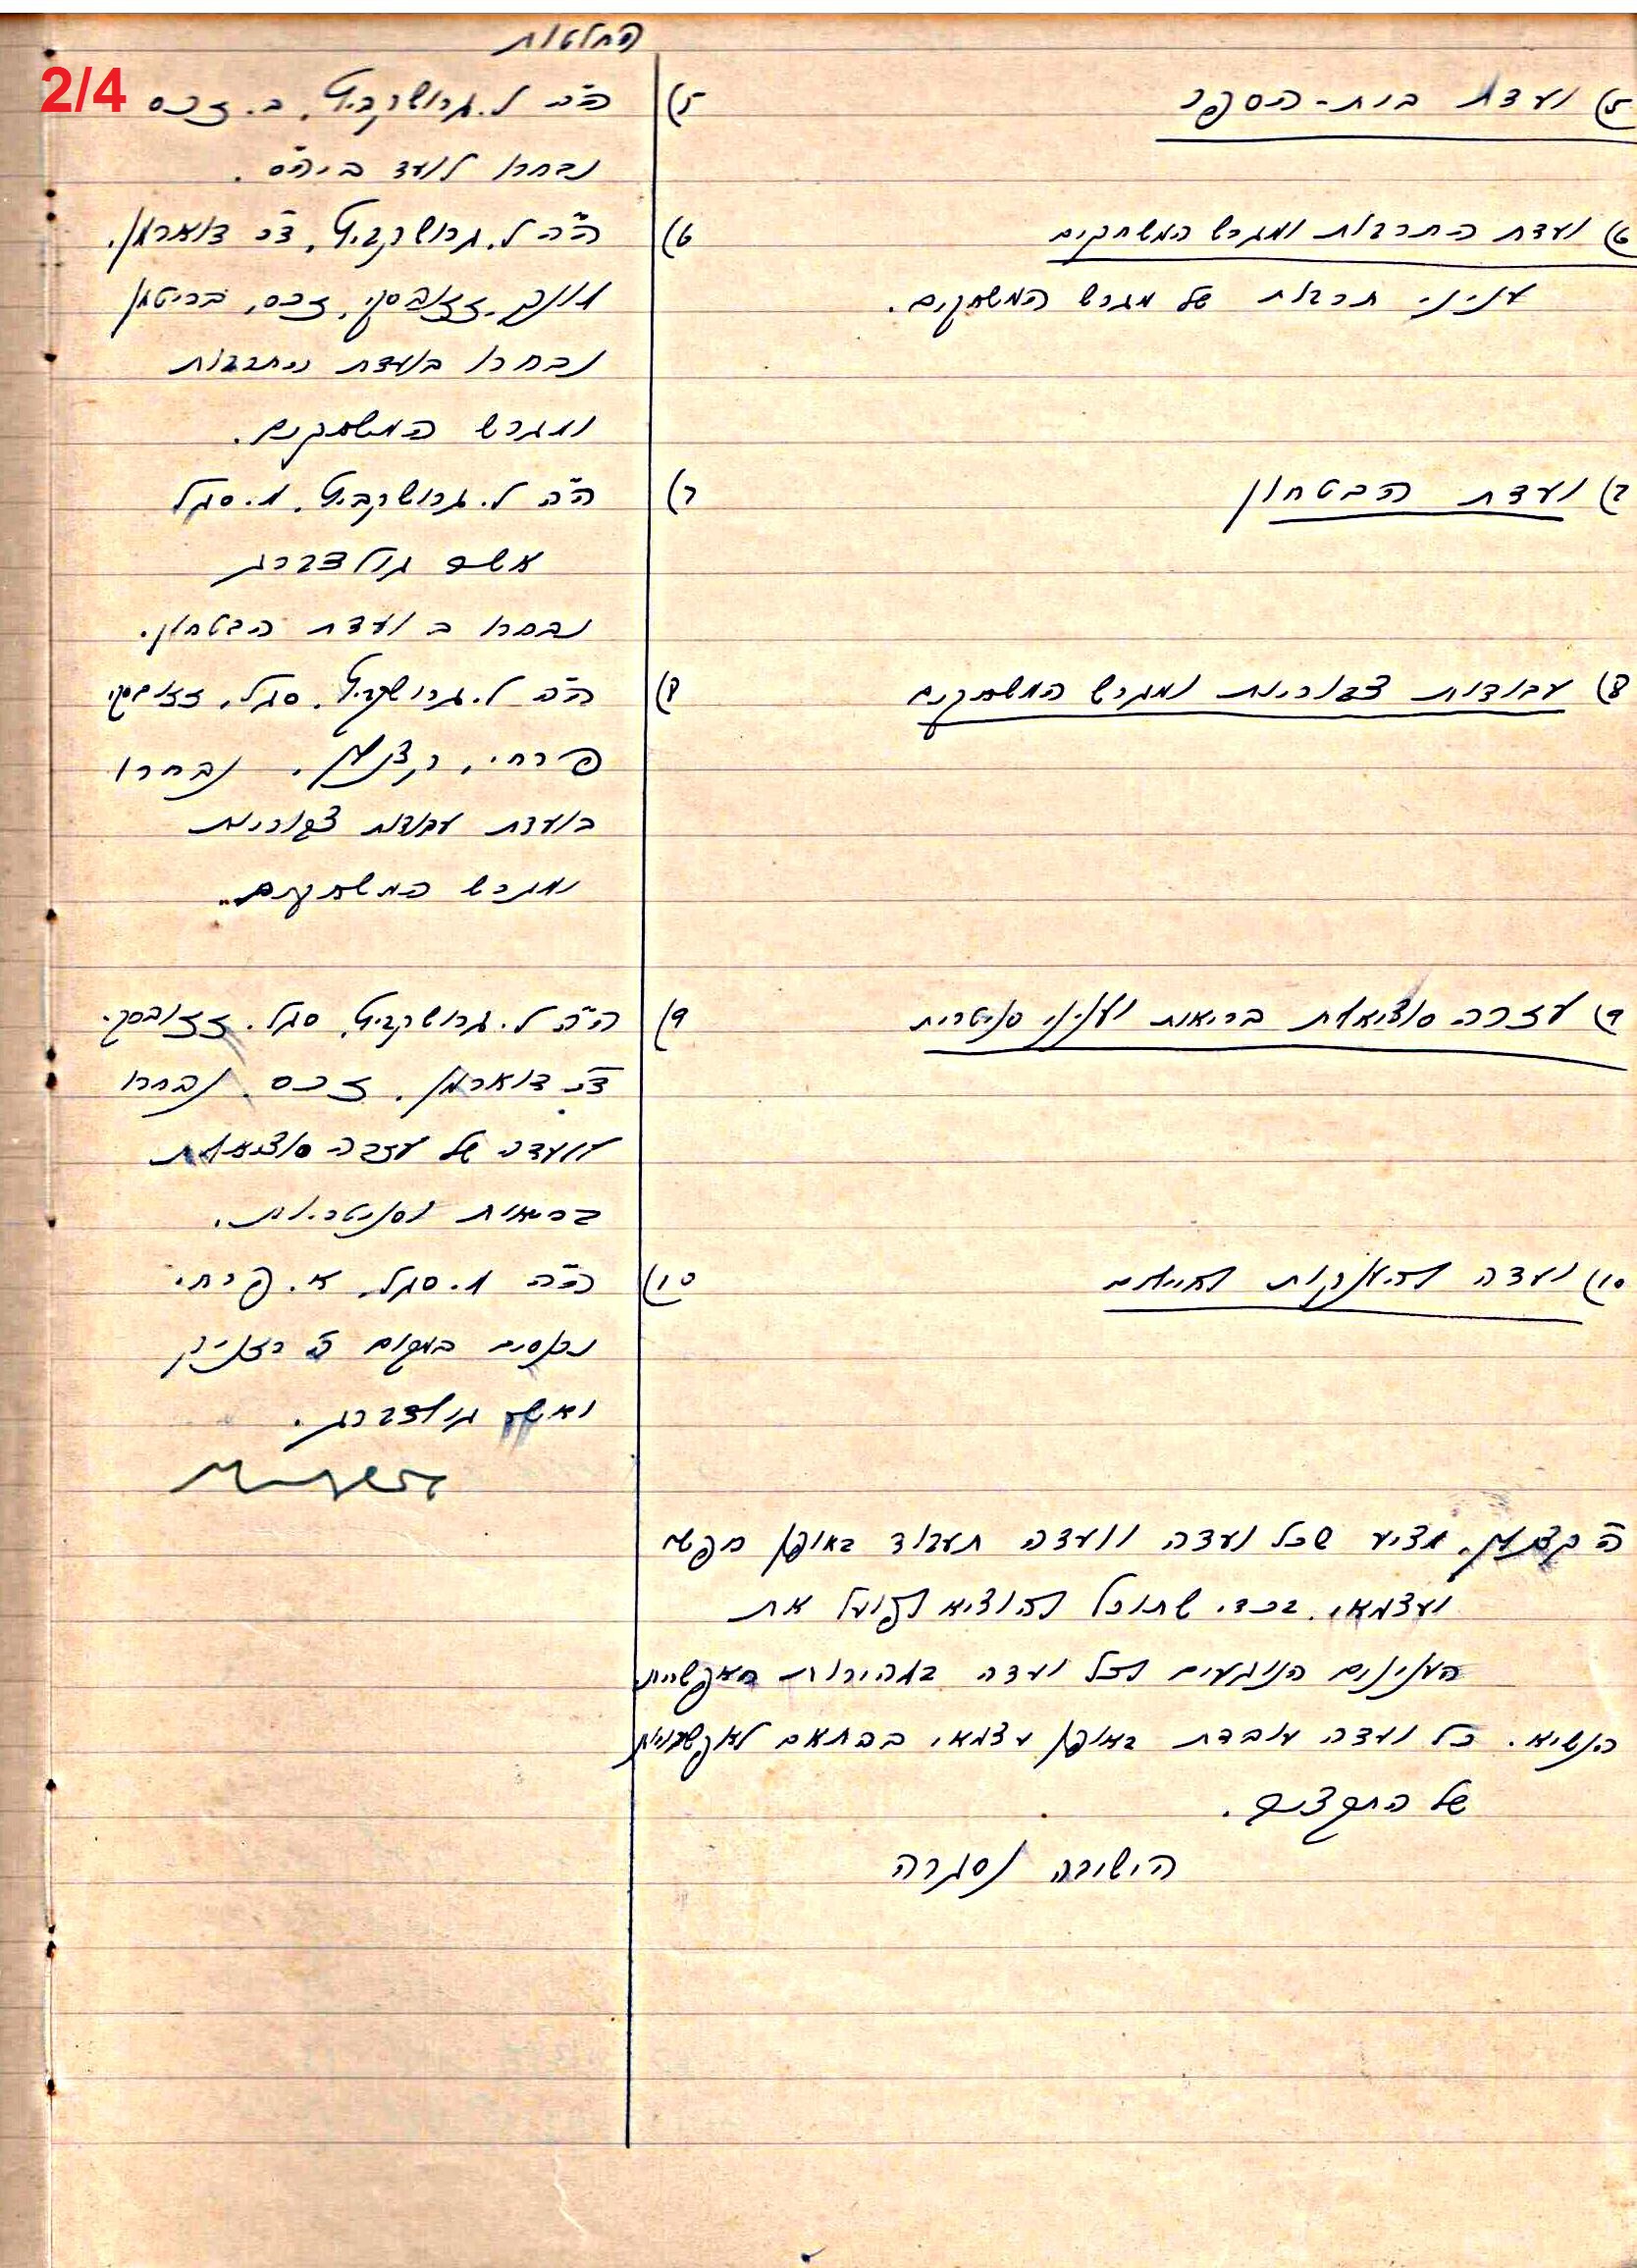 החלטות
2/4
5) ועדת בית-הספר
5) ה"ה ל. גרושקביץ, ב. זכס
נבחרו לועד ביה"ס.
6) ועדת התרבות ומגרש המשחקים
עניני תרבות של מגרש המשחקים.
6) ה"ה ל. גרושקביץ, ד"ר דוארמן,
זכס,
נבחרו בועדת התרבות
ומגרש המשחקים.
7) ועדת הבטחון
7) ה"ה ל. גרושקביץ, מ. סגל
אשר גולדברג
נבחרו ב ועדת הבטחון.
8) עבודות צבוריות ומגרש המשחקים
8) ה"ה ל. גרושקביץ, סגל,
פרחי, נבחרו
בועדת עבודות צבוריות
ומגרש המשחקים.
9) עזרה סוציאלית בריאות ועניני סניטרית
9) ה"ה ל. גרושקביץ, סגל.
ד"ר דוארמן, זכס נבחרו
לועדה של עזרה סוציאלית
בריאות וסניטריות.
10) ועדה
10) ה"ה מ. סגל, א. פרחי
נכנסים במקום ה'
ואשר גולדברג.
ה' מציע שכל ועדה וועדה תעבוד באופן חפשי
ועצמאי. בכדי שתוכל להוציא לפועל את
הענינים הנוגעים לכל ועדה במהירות האפשרית
הנשיא. כל ועדה עובדת באופן עצמאי בהתאם לאפשרויות
של התקציב.
הישיבה נסגרה